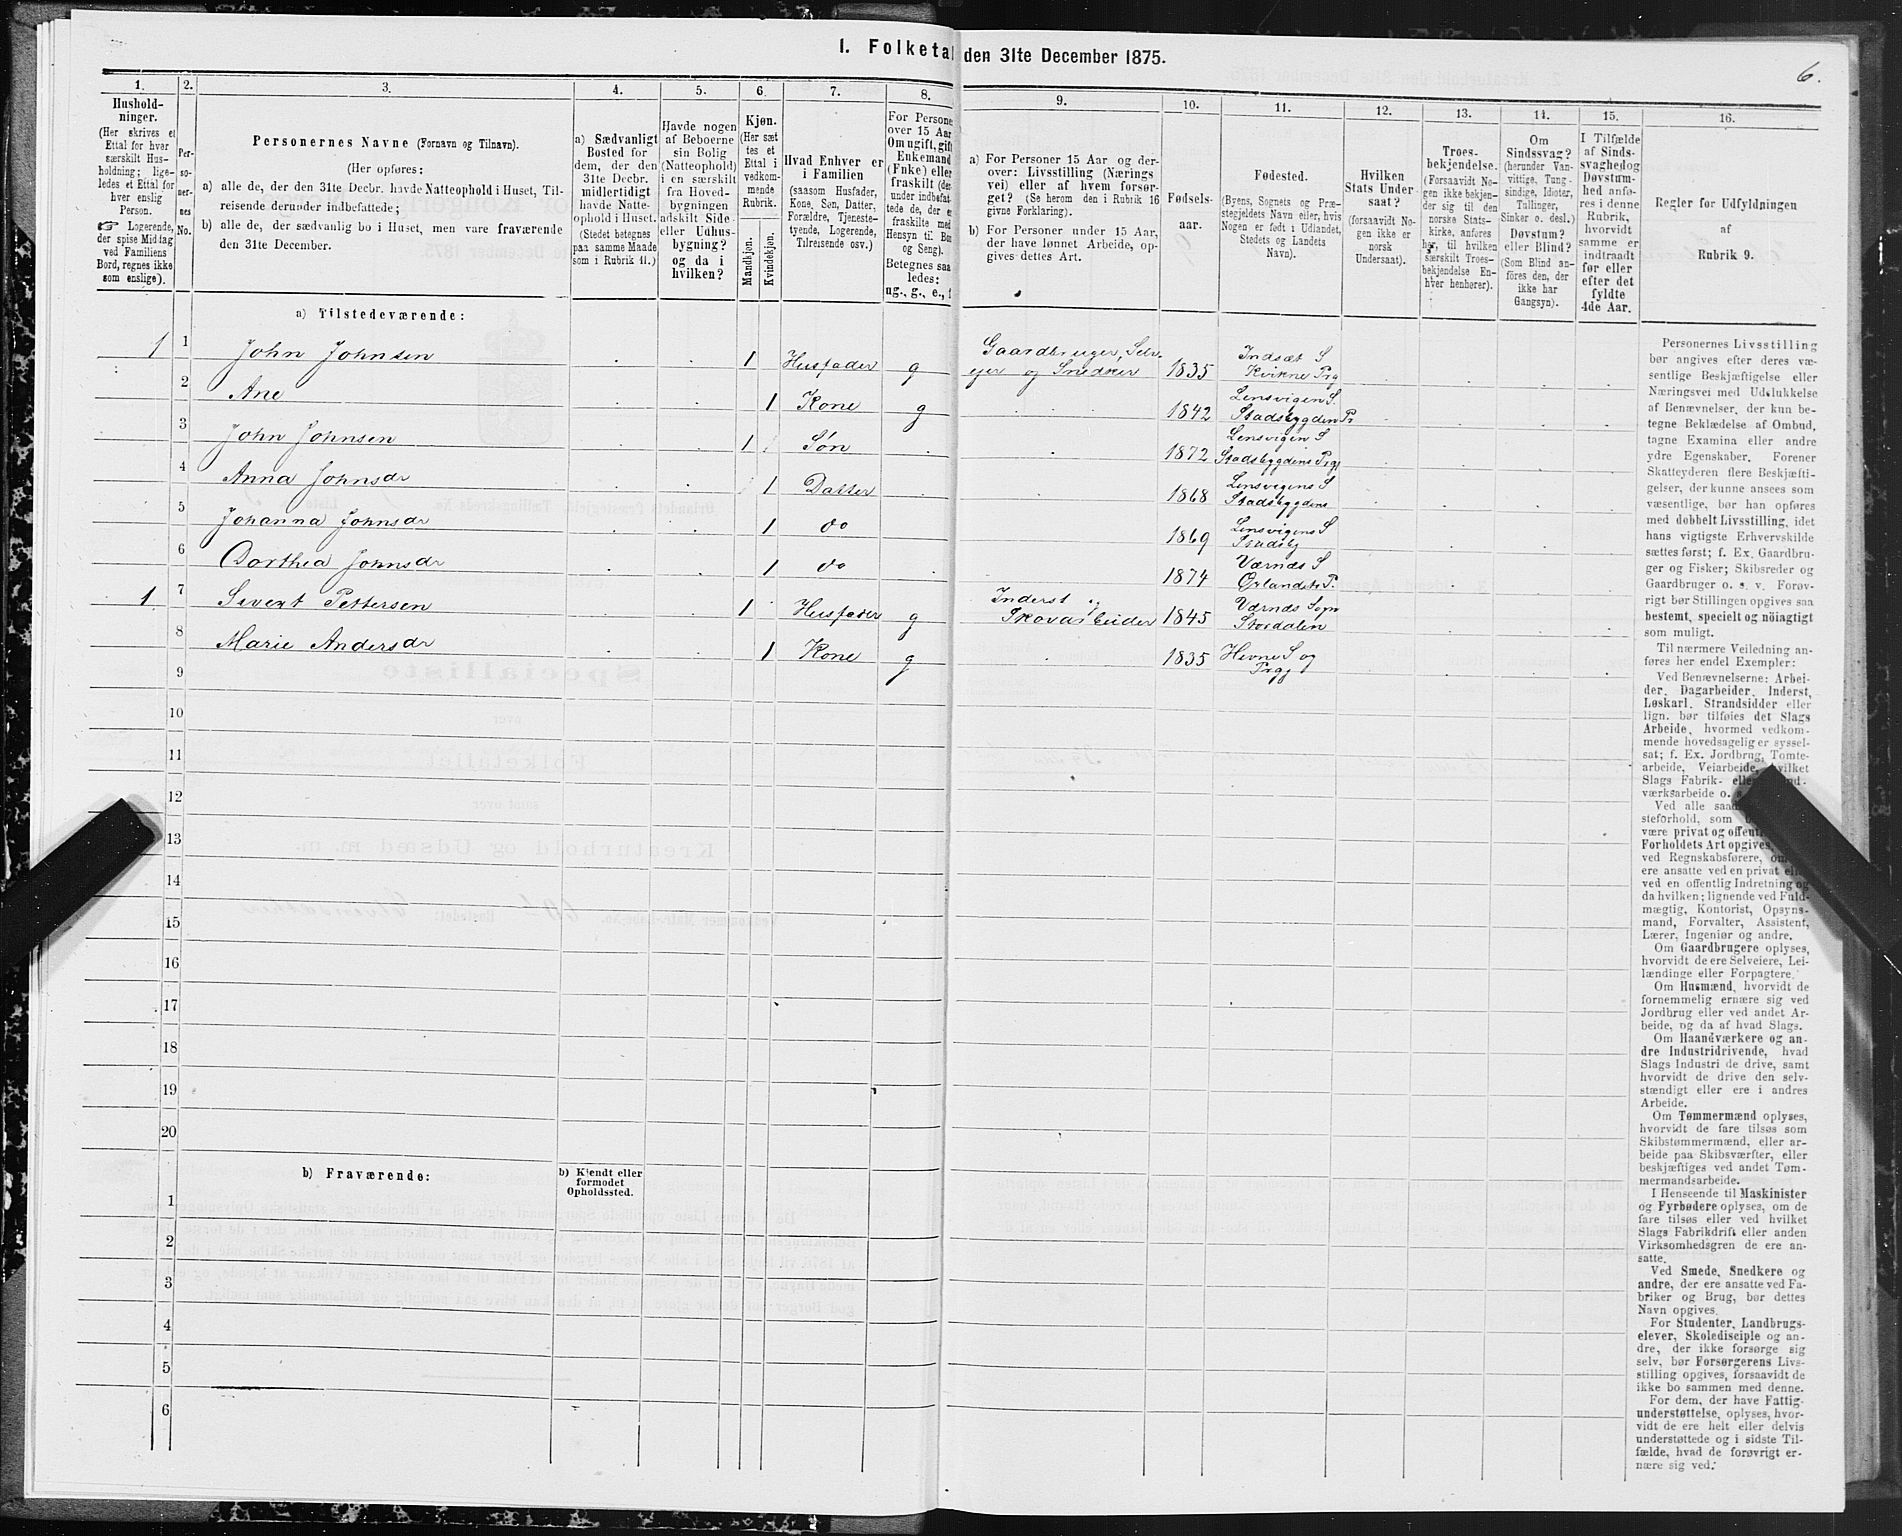 I. Folketal den 31te December 1875.
6.
1.
Hushold-
ninger.
(Her skrives et
Ettal for hver
særskilt Hus-
holdning; lige-
ledes et Ettal for
hver enslig
Person.
☞ Logerende,
der spise Middag
ved Familiens
Bord, regnes ikke
som enslige).
2.
Per-
so-
ner-
nes
No.
3.
Personernes Navne (Fornavn og Tilnavn).
(Her opføres:
a) alle de, der den 31te Decbr. havde Natteophold i Huset, Til-
reisende derunder indbefattede;
b) alle de, der sædvanlig bo i Huset, men vare fraværende
den 31te December.
4.
a) Sædvanligt
Bosted for
dem, der den
31te Decbr.
midlertidigt
havde Natte-
ophold i Huset.
(Stedet betegnes
paa samme Maade
som i Rubrik 11.)
5.
Havde nogen
af Beboerne
sin Bolig
(Natteophold)
i en særskilt
fra Hoved-
bygningen
adskilt Side-
eller Udhus-
bygning?
og da i
hvilken?
6.
Kjøn.
(Her sæt
tes et
Ettal i
vedkom-
mende
Rubrik.
Mandkjøn.
Kvindekjøn.
7.
Hvad Enhver er
i Familien
(saasom Husfader,
Kone, Søn, Datter,
Forældre, Tjeneste-
tyende, Logerende,
Tilreisende osv.)
8.
For Persone
over 15 Aar
Om ugift, gift
Enkemand
(Enke) eller
fraskilt (der
under indbefat-
tede de, der er
fraskilte med
Hensyn til Bo
og Seng).
Betegnes saa
ledes:
ug., g., e., f
9.
a) For Personer 15 Aar og der-
over: Livsstilling (Nærings
vei) eller af hvem forsør-
get? (Se herom den i Rubrik 16
givne Forklaring).
b) For Personer under 15 Aar,
der have lønnet Arbeide, op-
gives dettes Art.
10.
Fødsels-
aar.
11.
Fødested.
(Byens, Sognets og Præ-
stegjeldets Navn eller, hvis
Nogen er født i Udlandet,
Stedets og Landets
Navn).
12.
Hvilken
Stats Under-
saat?
(forsaavidt No-
gen ikke er
norsk
Undersaat).
13.
Troes-
bekjendelse.
(Forsaavidt No-
gen ikke bekjen-
der sig til den
norske Stats-
kirke, anføres
her, til hvilken
særskilt Troes-
bekjendelse En-
hver henhører).
14.
Om
Sindssvag?
(herunder Van-
vittige, Tung-
sindige, Idioter,
Tullinger,
Sinker o. desl.)
Døvstum?
eller Blind?
(Som Blind an-
føres den, der
ikke har
Gangsyn).
15.
I Tilfælde
af Sinds-
svaghed og
Døvstum-
hed anfø-
res i denne
Rubrik,
hvorvidt
samme er
indtraadt
før eller
efter det
fyldte
4de Aar.
16.
Regler for Udfyldningen
af
Rubrik 9.
a) Tilstedeværende:
1 1 John Johnsen 1 Husfader g Gaardbruger, Selv-
ejer og Snedker 1835 Indsæt S
Kvikne Prg
2 Ane 1 Kone g 1842 Lensvigen S.
Stadsbygden Pr
3 John Johnsen 1 Søn 1872 Lensvigen S
Stadsbygdens Prgj
4 Anna Johnsdr 1 Datter 1868 Lensvigens S
Stadsbygdens
5 Johanna Johnsdr 1 do 1869 Lensvigens S
Stadsby
6 Dorthea Johnsdr 1 do 1874 Værnæs S
Ørlandets P.
1 7 Sivert Pettersen 1 Husfader g Inderst og
Skovarbeider 1845 Værnæs Sogn
Stordalen
8 Marie Andersdr 1 Kone g 1835 Hevne S og
Prgj
9
10
11
12
13
14
15
16
17
18
19
20
b) Fraværende:
b) Kjendt eller
formodet
Opholdssted.
1
2
3
4
5
6
Personernes Livsstilling
bør angives efter deres væ-
sentlige Beskjæftigelse eller
Næringsvei med Udelukkelse
af Benævnelser, der kun be-
tegne Beklædelse af Ombud,
tagne Examina eller andre
ydre Egenskaber. Forener
Skatteyderen flere Beskjæfti-
gelser, der kunne ansees som
væsentlige, bør han opføres
med dobbelt Livsstilling, idet
hans vigtigste Erhvervskilde
sættes først; f. Ex. Gaardbru-
ger og Fisker; Skibsreder og
Gaardbruger o. s. v. Forøv-
rigt bør Stillingen opgives saa
bestemt, specielt og nöiagtigt
som muligt.
Til nærmere Veiledning an-
føres her endel Exempler:
Ved Benævnelserne: Arbei-
der, Dagarbeider, Inderst,
Løskarl, Strandsidder eller
lign. bør tilføies det Slags
Arbeide, hvormed vedkom-
mende hovedsagelig er syssel-
sat; f. Ex. Jordbrug, Tomte-
arbeide, Veiarbeide, hvilket
Slags Fabrik- eller
værksarbeide o. s.
Ved alle saad
steforhold, som
være privat og offent
Forholdets Art opgives,
ved Regnskabsførere, om
ere ansatte ved en privat eller
ved en offentlig Indretning og
da hvilken; lignende ved Fuld-
mægtig, Kontorist, Opsyns-
mand, Forvalter, Assistent,
Lærer, Ingeniør og andre.
Om Gaardbrugere oplyses,
hvorvidt de ere Selveiere, Lei-
lændinge eller Forpagtere.
Om Husmænd, hvorvidt de
fornemmelig ernære sig ved
Jordbrug eller ved andet Ar-
beide, og da af hvad Slags.
Om Haandværkere og an-
dre Industridrivende, hvad
Slags Industri de drive, samt
hvorvidt de drive den selv-
stændigt eller ere i andres
Arbeide.
Om Tømmermænd oplyses,
hvorvidt de fare tilsøs som
Skibstømmermænd, eller ar-
beide paa Skibsværfter, eller
beskjæftiges ved andet Tøm-
mermandsarbeide.
I Henseende til Maskinister
og Fyrbødere oplyses, om de
fare tilsøs eller ved hvilket
Slags Fabrikdrift eller anden
Virksomhedsgren de ere an-
satte.
Ved Smede, Snedkere og
andre, der ere ansatte ved Fa-
briker og Brug, bør dettes
Navn opgives.
For Studenter, Landbrugs-
elever, Skoledisciple og an-
dre, der ikke forsørge sig
selv, bør Forsørgerens Livs-
stilling opgives, forsaavidt de
ikke bo sammen med denne.
For dem, der have Fattig-
understøttelse, oplyses, hvor-
vidt de ere helt eller delvis
understøttede og i sidste Til-
fælde, hvad de forøvrigt er-
nære sig ved.